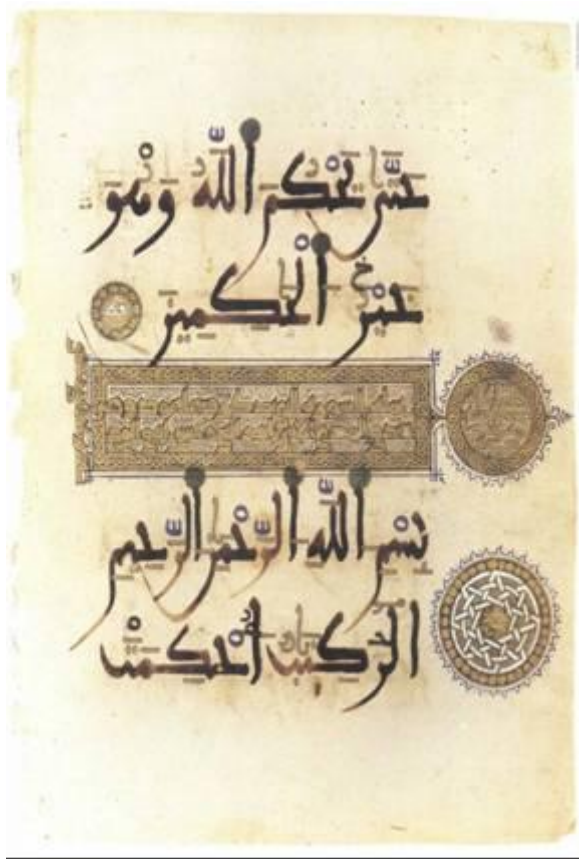 حتى يحكم الله وهو
خير الحكمين
بسم الله الرحمن الرحيم
الر كتب احكمت